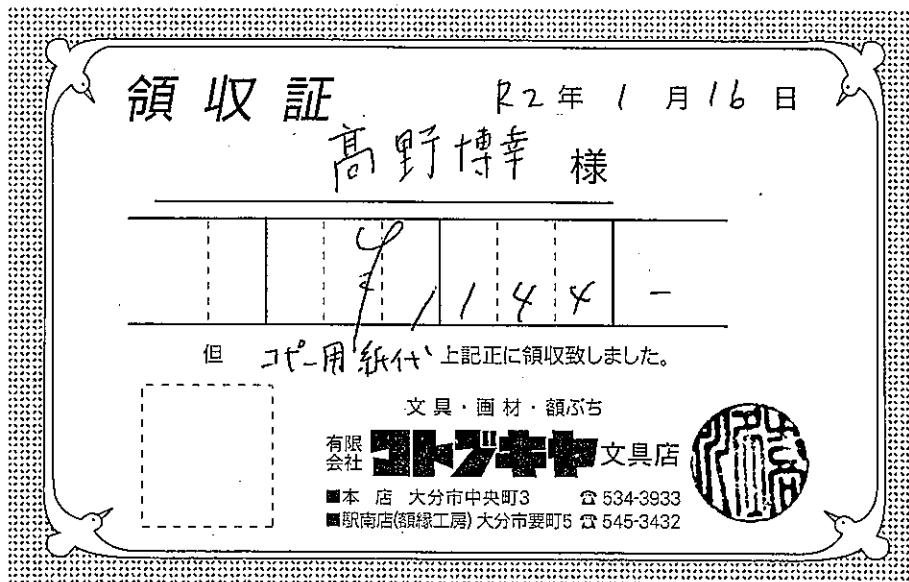 領収証 R2年 1月16日
髙野博幸 様
¥1,144-
但 コピー用紙代 上記正に領収致しました。
文具・画材・額ぶち
有限会社 コトブキヤ 文具店
■本 店 大分市中央町3 ☎534-3933
■駅南店(額縁工房) 大分市要町5 ☎545-3432